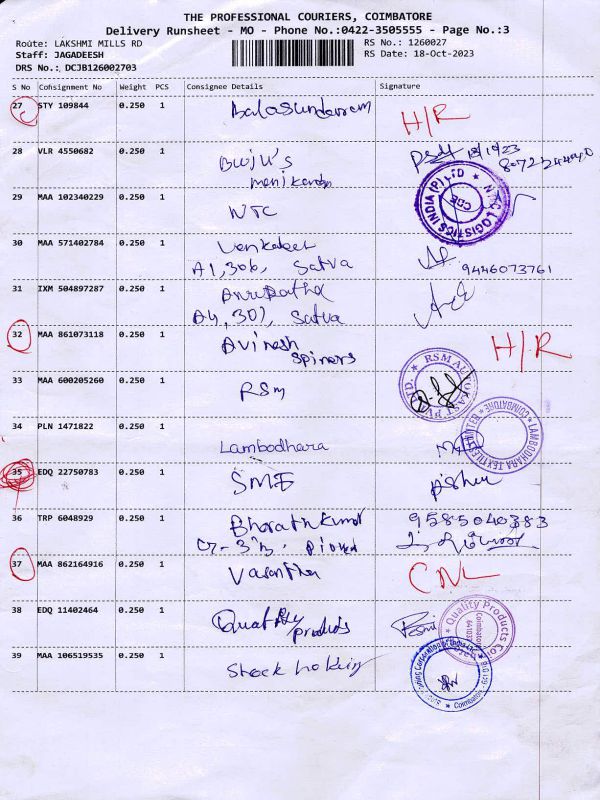 THE PROFESSIONAL COURIERS, COIMBATORE
Delivery Runsheet - MO - Phone No.:0422-3505555 - Page No.:3
Route: LAKSHMI MILLS RD
RS No.: 1260027
Staff: JAGADEESH
RS Date: 18-Oct-2023
DRS No.: DCJB126002703
S No Cofisignment No Weight PCS Consignee Details Signature
27 STY 109844 0.250 1 Balasundaram H/R
28 VLR 4550682 0.250 1 Buju's
manikandan
29 MAA 102340229 0.250 1 NTC
NTC LOGISTICS INDIA (P) LTD
CBE
30 MAA 571402784 0.250 1 Venkatesh
A1,306, Satva 9446073761
31 IXM 504897287 0.250 1 Anuradha
A4,301, Satva
32 MAA 861073118 0.250 1 Avinash H/R
spiners
33 MAA 600205260 0.250 1 RSM
RSM AUTOKAST PVT LTD.
34 PLN 1471822 0.250 1 Lambodhara
LAMBODHARA TEXTILES LIMITED COIMBATORE
35 EDQ 22750783 0.250 1 SME
36 TRP 6048929 0.250 1 Bharathkumar 9585040383
37 MAA 862164916 0.250 1 Vasantha CNL
38 EDQ 11402464 0.250 1 Quality products
Quality Products Co.
Coimbatore
39 MAA 106519535 0.250 1 Stock holding
Coimbatore